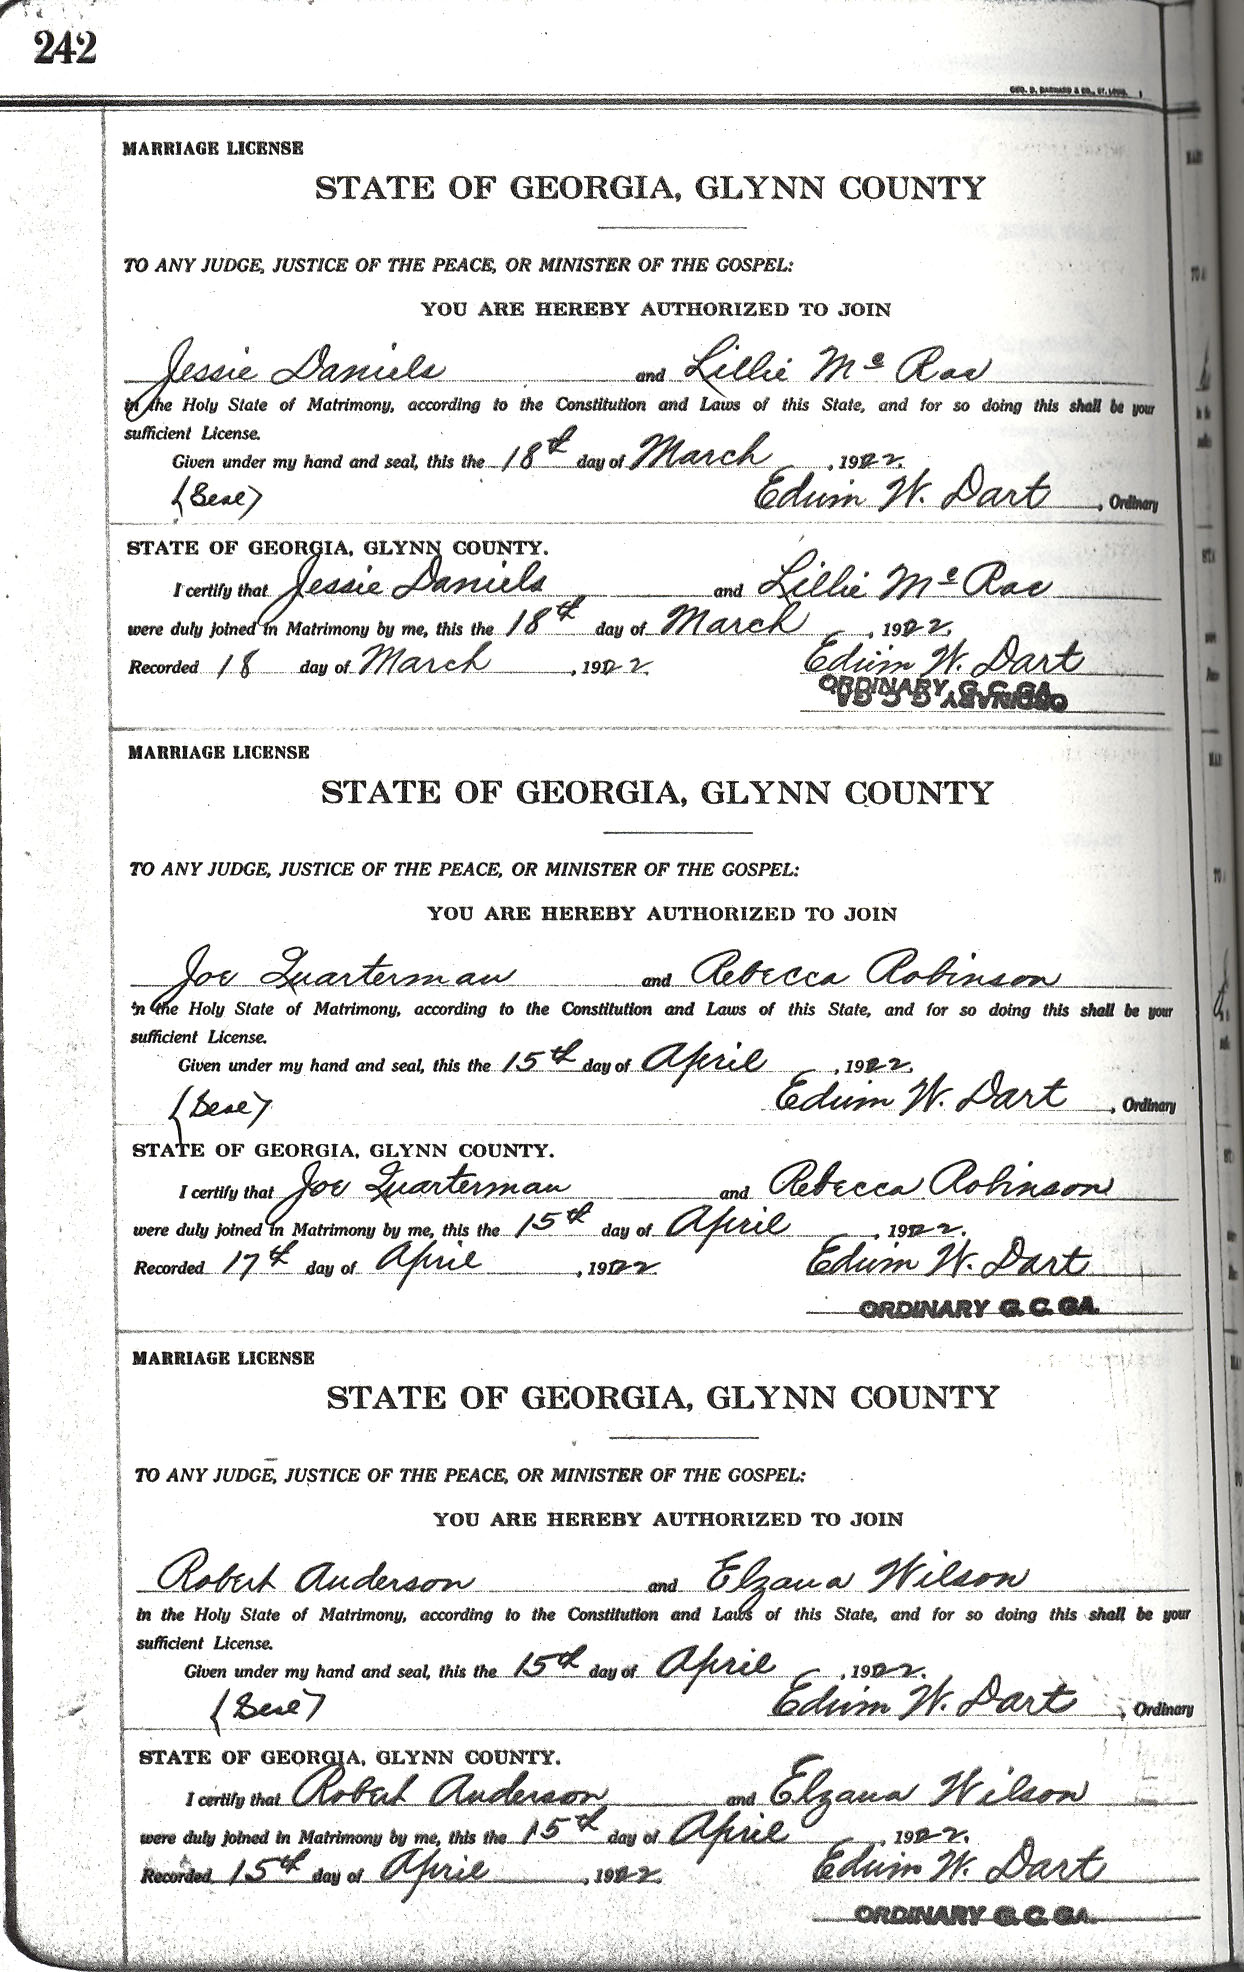 242
GEO. D. BARNARD & CO., ST. LOUIS.
MARRIAGE LICENSE
STATE OF GEORGIA, GLYNN COUNTY
TO ANY JUDGE, JUSTICE OF THE PEACE, OR MINISTER OF THE GOSPEL:
YOU ARE HEREBY AUTHORIZED TO JOIN
Jessie Daniels and Lillie Mc Rae
in the Holy State of Matrimony, according to the Constitution and Laws of this State, and for so doing this shall be your
sufficient License.
Given under my hand and seal, this the 18th day of March, 1922.
(Seal) Edwin W. Dart, Ordinary
STATE OF GEORGIA, GLYNN COUNTY.
I certify that Jessie Daniels and Lillie Mc Rae
were duly joined in Matrimony by me, this the 18th day of March, 1922.
Recorded 18 day of March, 1922. Edwin W. Dart
ORDINARY G. C. GA.
ORDINARY G. C. GA.
MARRIAGE LICENSE
STATE OF GEORGIA, GLYNN COUNTY
TO ANY JUDGE, JUSTICE OF THE PEACE, OR MINISTER OF THE GOSPEL:
YOU ARE HEREBY AUTHORIZED TO JOIN
Joe Quarterman and Rebecca Robinson
in the Holy State of Matrimony, according to the Constitution and Laws of this State, and for so doing this shall be your
sufficient License.
Given under my hand and seal, this the 15th day of April, 1922.
(Seal) Edwin W. Dart, Ordinary
STATE OF GEORGIA, GLYNN COUNTY.
I certify that Joe Quarterman and Rebecca Robinson
were duly joined in Matrimony by me, this the 15th day of April, 1922.
Recorded 17th day of April, 1922. Edwin W. Dart
ORDINARY G. C. GA.
MARRIAGE LICENSE
STATE OF GEORGIA, GLYNN COUNTY
TO ANY JUDGE, JUSTICE OF THE PEACE, OR MINISTER OF THE GOSPEL:
YOU ARE HEREBY AUTHORIZED TO JOIN
Robert Anderson and Elzana Wilson
in the Holy State of Matrimony, according to the Constitution and Laws of this State, and for so doing this shall be your
sufficient License.
Given under my hand and seal, this the 15th day of April, 1922.
(Seal) Edwin W. Dart, Ordinary
STATE OF GEORGIA, GLYNN COUNTY.
I certify that Robert Anderson and Elzana Wilson
were duly joined in Matrimony by me, this the 15th day of April, 1922.
Recorded 15th day of April, 1922. Edwin W. Dart
ORDINARY G. C. GA.